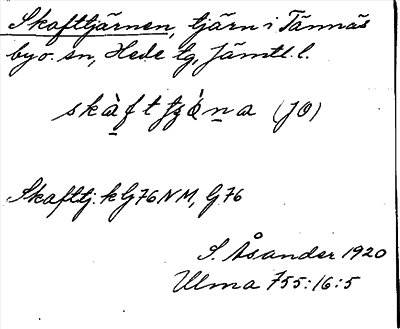 Skafttjärnen, tjärn i Tännäs
by o. sn, Hede tg, Jämtl. l.
Skafttj. k G76 NM, G 76
S. Åsander 1920
Ulma 755:16:5